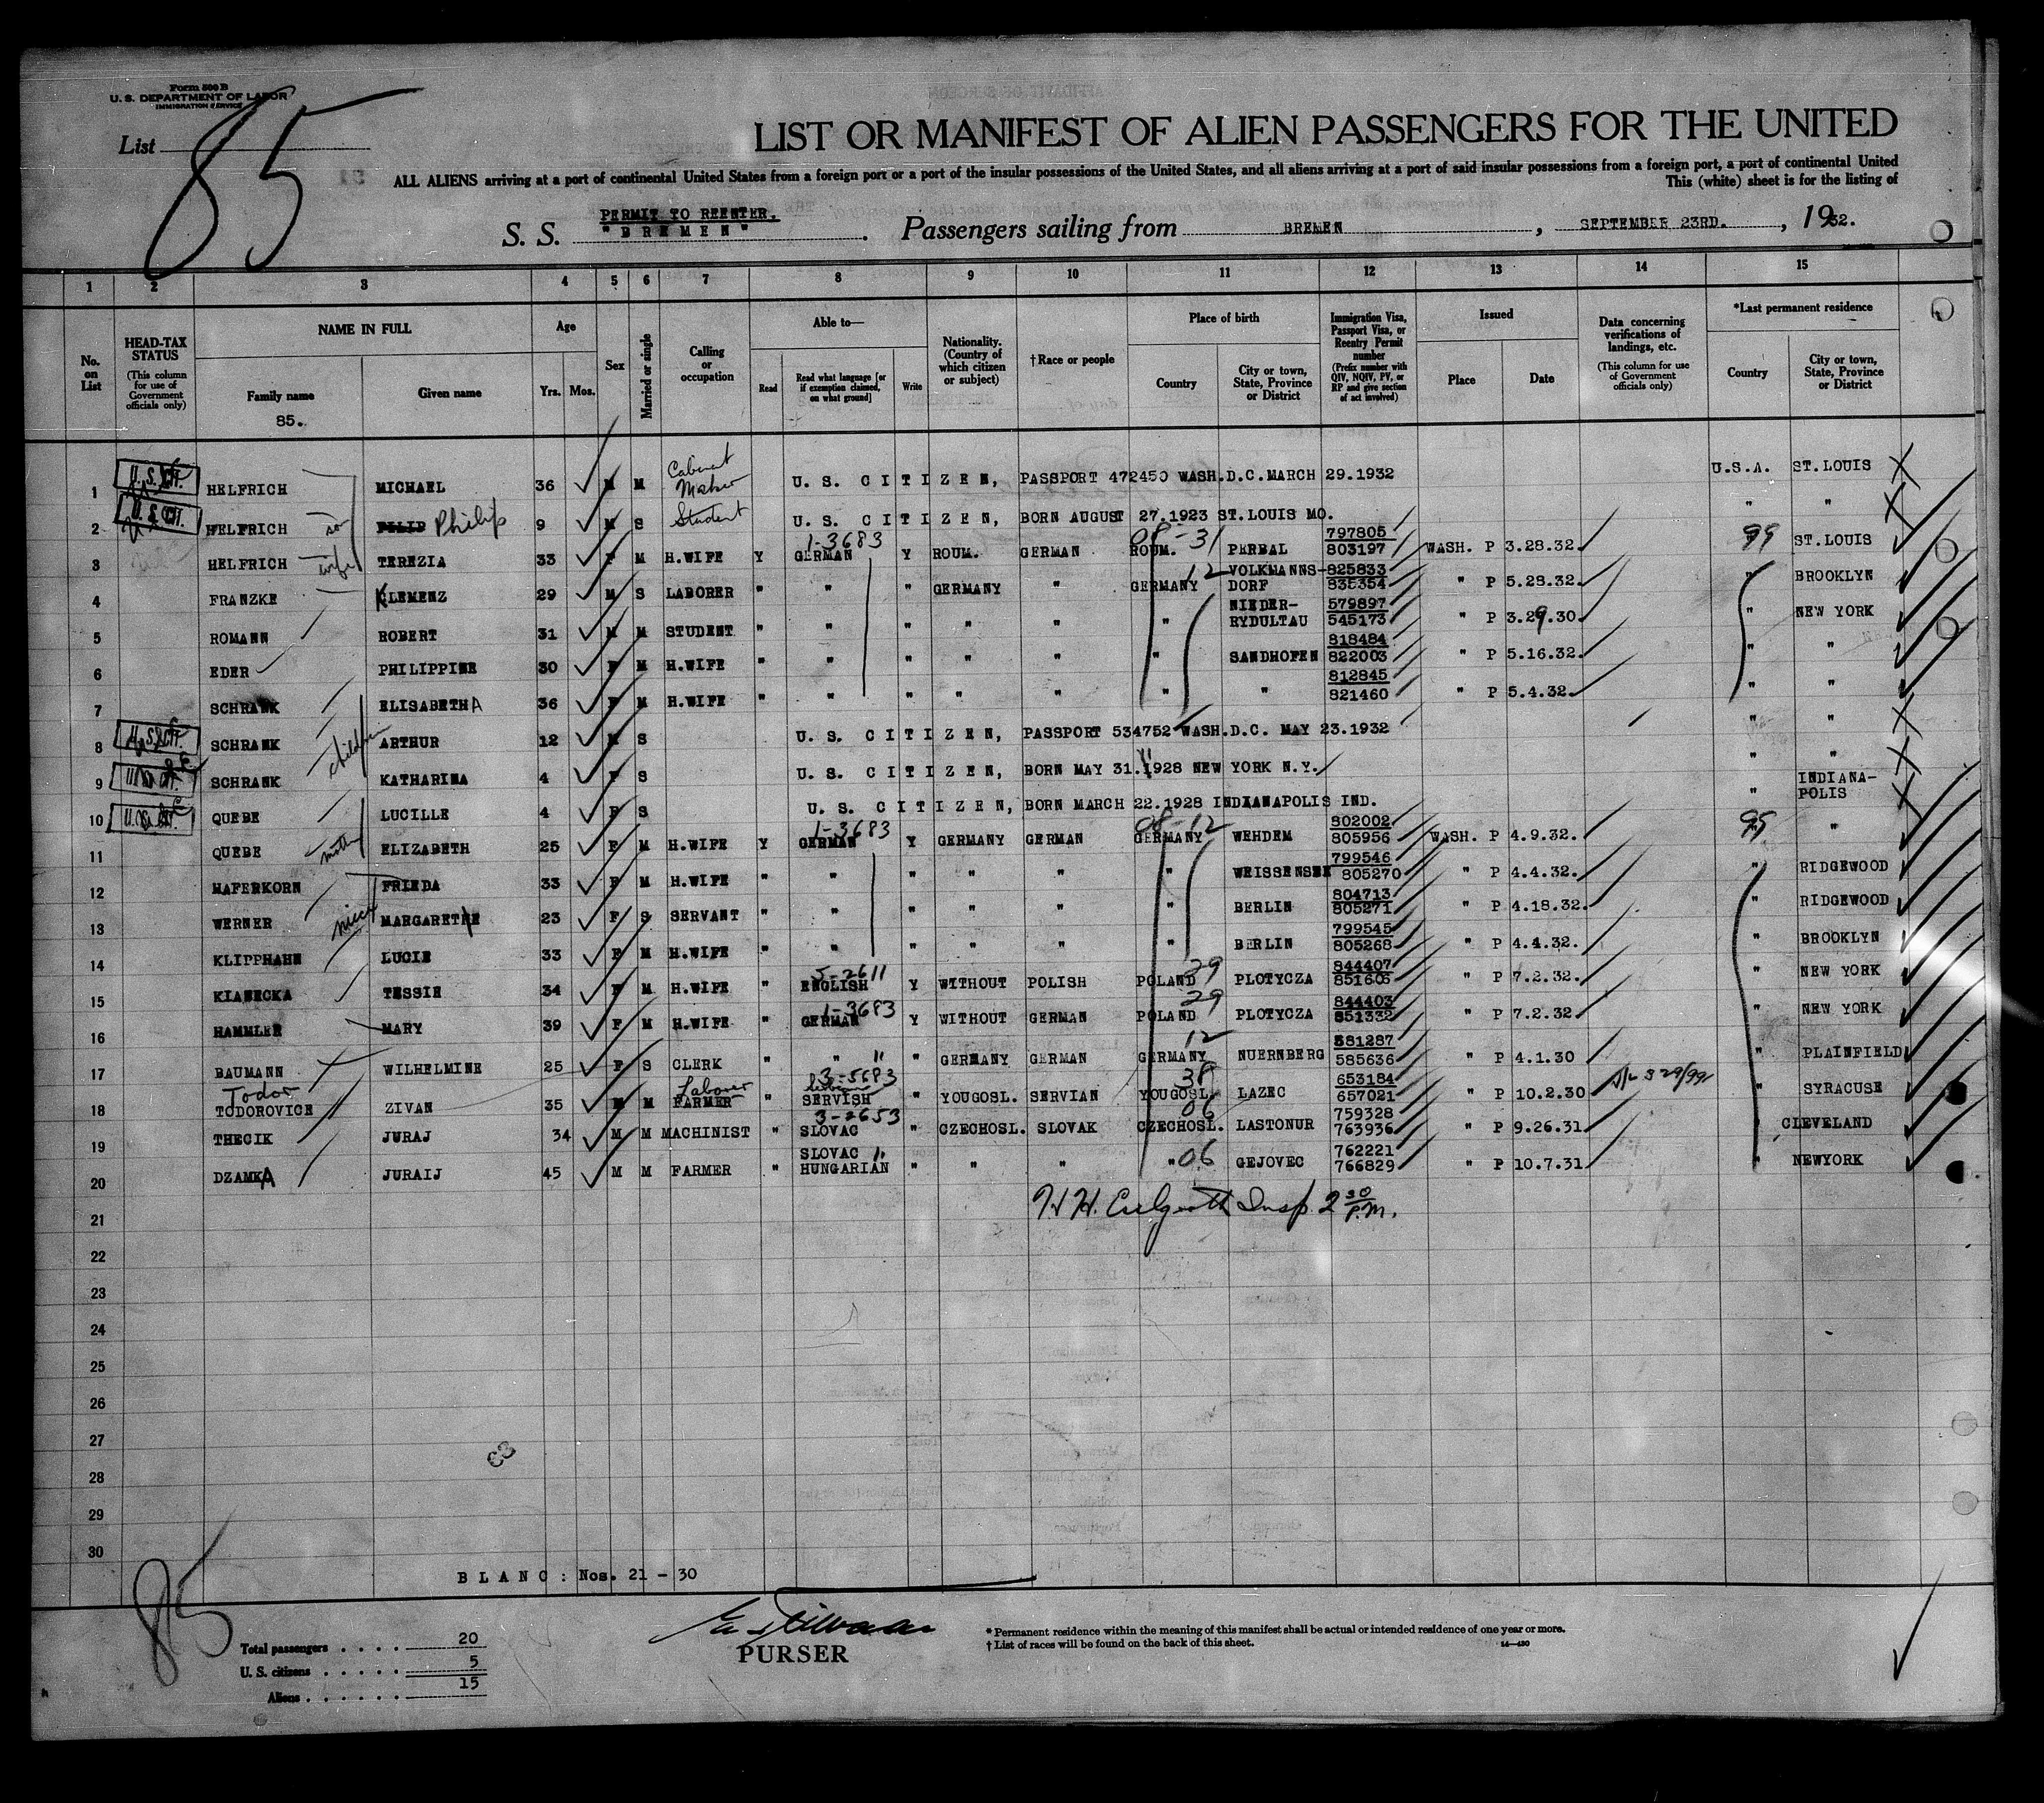 Form 500 B
U. S. DEPARTMENT OF LABOR
IMMIGRATION SERVICE
List 85
LIST OR MANIFEST OF ALIEN PASSENGERS FOR THE UNITED
ALL ALIENS arriving at a port of continental United States from a foreign port or a port of the insular possessions of the United States, and all aliens arriving at a port of said insular possessions from a foreign port, a port of continental United
This (white) sheet is for the listing of
PERMIT TO REENTER.
S. S. "BREMEN". Passengers sailing from BREMEN, SEPTEMBER 23RD., 1932.
1 2 3 4 5 6 7 8 9 10 11 12 13 14 15
No. on List
HEAD-TAX STATUS
(This column for use of Government officials only)
NAME IN FULL
Family name
85.
Given name
Age
Yrs. Mos.
Sex
Married or single
Calling or occupation
Able to—
Read
Read what language [or if exemption claimed, on what ground]
Write
Nationality. (Country of which citizen or subject)
†Race or people
Place of birth
Country
City or town, State, Province or District
Immigration Visa, Passport Visa, or Reentry Permit number
(Prefix number with QIV, NQIV, PV, or RP and give section of act involved)
Issued
Place
Date
Data concerning verifications of landings, etc.
(This column for use of Government officials only)
*Last permanent residence
Country
City or town, State, Province or District
1 U.S. CIT. HELFRICH MICHAEL 36 M M Cabinet Maker U. S. CITIZEN, PASSPORT 472450 WASH.D.C.MARCH 29.1932 U.S.A. ST.LOUIS
2 U.S. CIT. HELFRICH son FILIP Philip 9 M S Student U. S. CITIZEN, BORN AUGUST 27.1923 ST.LOUIS MO. " "
1-3683 08-31 797805
3 HELFRICH wife TEREZIA 33 F M H.WIFE Y GERMAN Y ROUM. GERMAN ROUM. PERBAL 803197 WASH. P 3.28.32. 99 ST.LOUIS
12 VOLKMANNS- 825833
4 FRANZKE KLEMENZ 29 M S LABORER " " " GERMANY " GERMANY DORF 835354 " P 5.28.32. " BROOKLYN
NIEDER- 579897
5 ROMANN ROBERT 31 M M STUDENT " " " " " " RYDULTAU 545173 " P 3.29.30. " NEW YORK
818484
6 EDER PHILIPPINE 30 F M H.WIFE " " " " " " SANDHOFEN 822003 " P 5.16.32. " "
812845
7 SCHRANK ELISABETHA 36 F M H.WIFE " " " " " " " 821460 " P 5.4.32. " "
8 U.S. CIT. SCHRANK children ARTHUR 12 M S U. S. CITIZEN, PASSPORT 534752 WASH.D.C. MAY 23.1932 " "
9 U.S. CIT. SCHRANK KATHARINA 4 F S U. S. CITIZEN, BORN MAY 31.1928 NEW YORK N.Y. " "
10 U.S. CIT. QUEBE LUCILLE 4 F S U. S. CITIZEN, BORN MARCH 22.1928 INDIANAPOLIS IND. " INDIANA-POLIS
1-3683 08-12 802002
11 QUEBE mother ELIZABETH 25 F M H.WIFE Y GERMAN Y GERMANY GERMAN GERMANY WEHDEM 805956 WASH. P 4.9.32. "
799546
12 HAFERKORN FRIEDA 33 F M H.WIFE " " " " " " WEISSENSEE 805270 " P 4.4.32. " RIDGEWOOD
804713
13 WERNER niece MARGARETHE 23 F S SERVANT " " " " " " BERLIN 805271 " P 4.18.32. " RIDGEWOOD
799545
14 KLIPPHAHN LUCIE 33 F M H.WIFE " " " " " " BERLIN 805268 " P 4.4.32. " BROOKLYN
5-2611 29 844407
15 KIANECKA TESSIE 34 F M H.WIFE " ENGLISH Y WITHOUT POLISH POLAND PLOTYCZA 851606 " P 7.2.32. " NEW YORK
1-3683 29 844403
16 HAMMLER MARY 39 F M H.WIFE " GERMAN Y WITHOUT GERMAN POLAND PLOTYCZA 851332 " P 7.2.32 " NEW YORK
12 581287
17 BAUMANN WILHELMINE 25 F S CLERK " " " GERMANY GERMAN GERMANY NUERNBERG 585636 " P 4.1.30 " PLAINFIELD
Todor Laborer 3-5683 38 653184
18 TODOROVICE ZIVAN 35 M M FARMER " SERVISH " YOUGOSL. SERVIAN YOUGOSL. LAZEC 657021 " P 10.2.30 " SYRACUSE
3-2653 06 759328
19 THECIK JURAJ 34 M M MACHINIST " SLOVAC " CZECHOSL. SLOVAK CZECHOSL. LASTONUR 763936 " P 9.26.31 " CLEVELAND
SLOVAC " 762221
20 DZAMKA JURAIJ 45 M M FARMER " HUNGARIAN " " " " 06 GEJOVEC 766829 " P 10.7.31 " NEWYORK
21 Insp. 2 30 P.M.
22
23
24
25
26
27
28
29
30
BLANC: Nos. 21 - 30
85
Total passengers . . . . 20
U. S. citizens . . . . . 5
Aliens . . . . . . 15
PURSER
* Permanent residence within the meaning of this manifest shall be actual or intended residence of one year or more.
† List of races will be found on the back of this sheet.
14—430